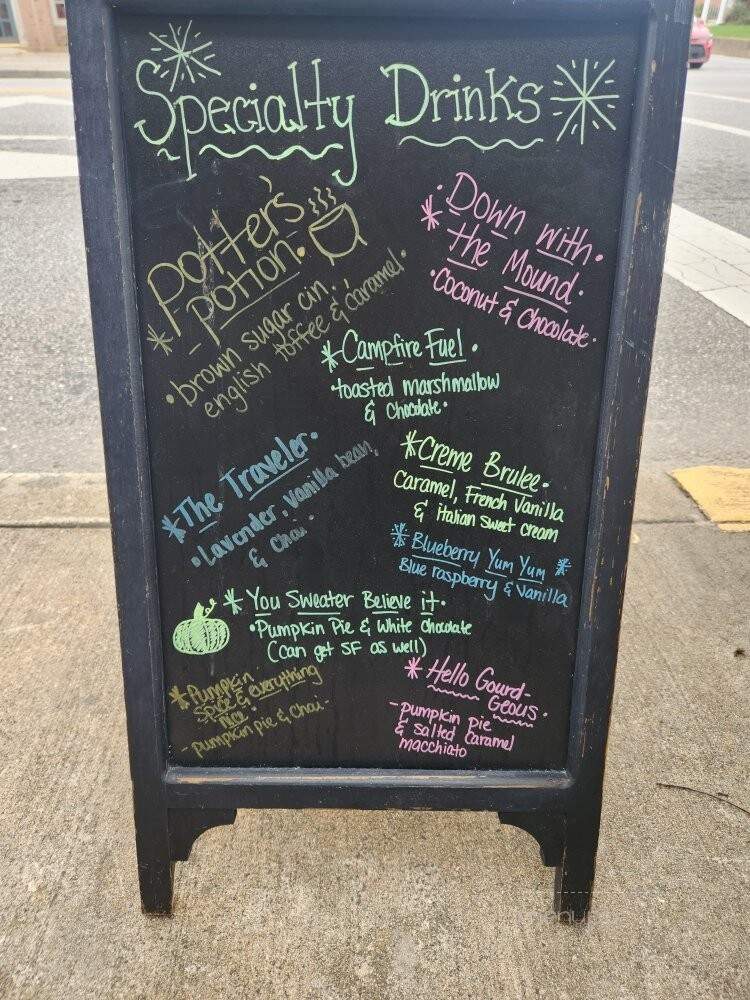 Specialty Drinks
*Potter's
potion.
•brown sugar cin.
english toffee & caramel•
*Down with•
the Mound•
•Coconut & Chocolate•
*Campfire Fuel•
•toasted marshmallow
& Chocolate•
*The Traveler•
•Lavender, Vanilla bean,
& Chai•
*Creme Brulee•
Caramel, French Vanilla
& italian sweet cream
*Blueberry Yum Yum*
Blue raspberry & Vanilla
*You Sweater Believe it•
•Pumpkin Pie & White Chocolate
(can get SF as well)
*Pumpkin
Spice & everything
Nice•
-Pumpkin pie & Chai-
*Hello Gourd-
Geous•
-pumpkin pie
& salted caramel
macchiato